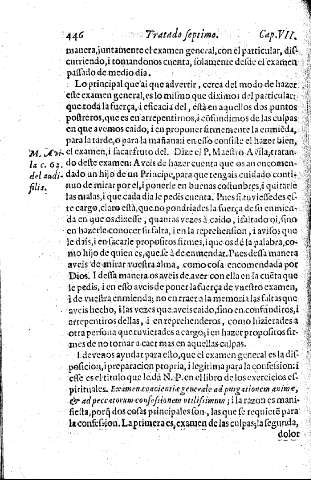 446 Tratado septimo. Cap.VII.
manera, juntamente el examen general, con el particular, dis-
curriendo, i tomandonos cuenta, solamente desde el examen
passado de medio dia.
Lo principal que ai que advertir, cerca del modo de hazer
este examen general, es lo mismo que diximos del particular;
que toda la fuerça, i eficacia del, està en aquellos dos puntos
postreros, que es en arrepentirnos, i cōfundirnos de las culpas
en que avemos caido, i en proponer firmemente la enmiēda,
para la tarde, o para la mañana: i en esso consiste el hazer bien,
el examen, i sacar fruto del. Dize el P. Maestro Avila, tratan-
do deste examen: Aveis de hazer cuenta que os an encomen-
dado un hijo de un Principe, para que tengais cuidado conti-
nuo de mirar por el, i ponerle en buenas costumbres, i quitarle
las malas, i que cada dia le pedis cuenta. Pues si tuviessedes es-
te cargo, claro està, que no pondriades la fuerça de su enmien-
da en que os dixesse, quantas vezes à caido, i faltado oi, sino
en hazerle conocer su falta, i en la reprehension, i avisos que
le dais, i en sacarle propositos firmes, i que os dè la palabra, co-
mo hijo de quien es, que se à de enmendar. Pues desta manera
aveis de mirar vuestra alma, como cosa encomendada por
Dios. I desta manera os aveis de aver con ella en la cuēta que
le pedis, i en esso aveis de poner la fuerça de vuestro examen,
i de vuestra enmienda; no en traer a la memoria las faltas que
aveis hecho, i las vezes que aveis caido, sino en confundiros, i
arrepentiros dellas, à en reprehenderos, como hizierades a
otra persona que tuvierades a cargo; i en hazer propositos fir-
mes de no tornar a caer mas en aquellas culpas.
I devenos ayudar para esto, que el examen general es la dis-
posicion, i preparacion propria, i legitima para la confession: i
esse es el titulo que le dà N. P. en el libro de los exercicios es-
pirituales. Examen conscientiæ generale ad purgationem animæ,
& ad peccatorum confessionem utilissimum; i la razon es mani-
fiesta, porq̄ dos cosas principales son, las que se requierē para
la confession. La primera es, examen de las culpas; la segunda,
dolor
M. Avi-
la c. 62.
del audi
filia.